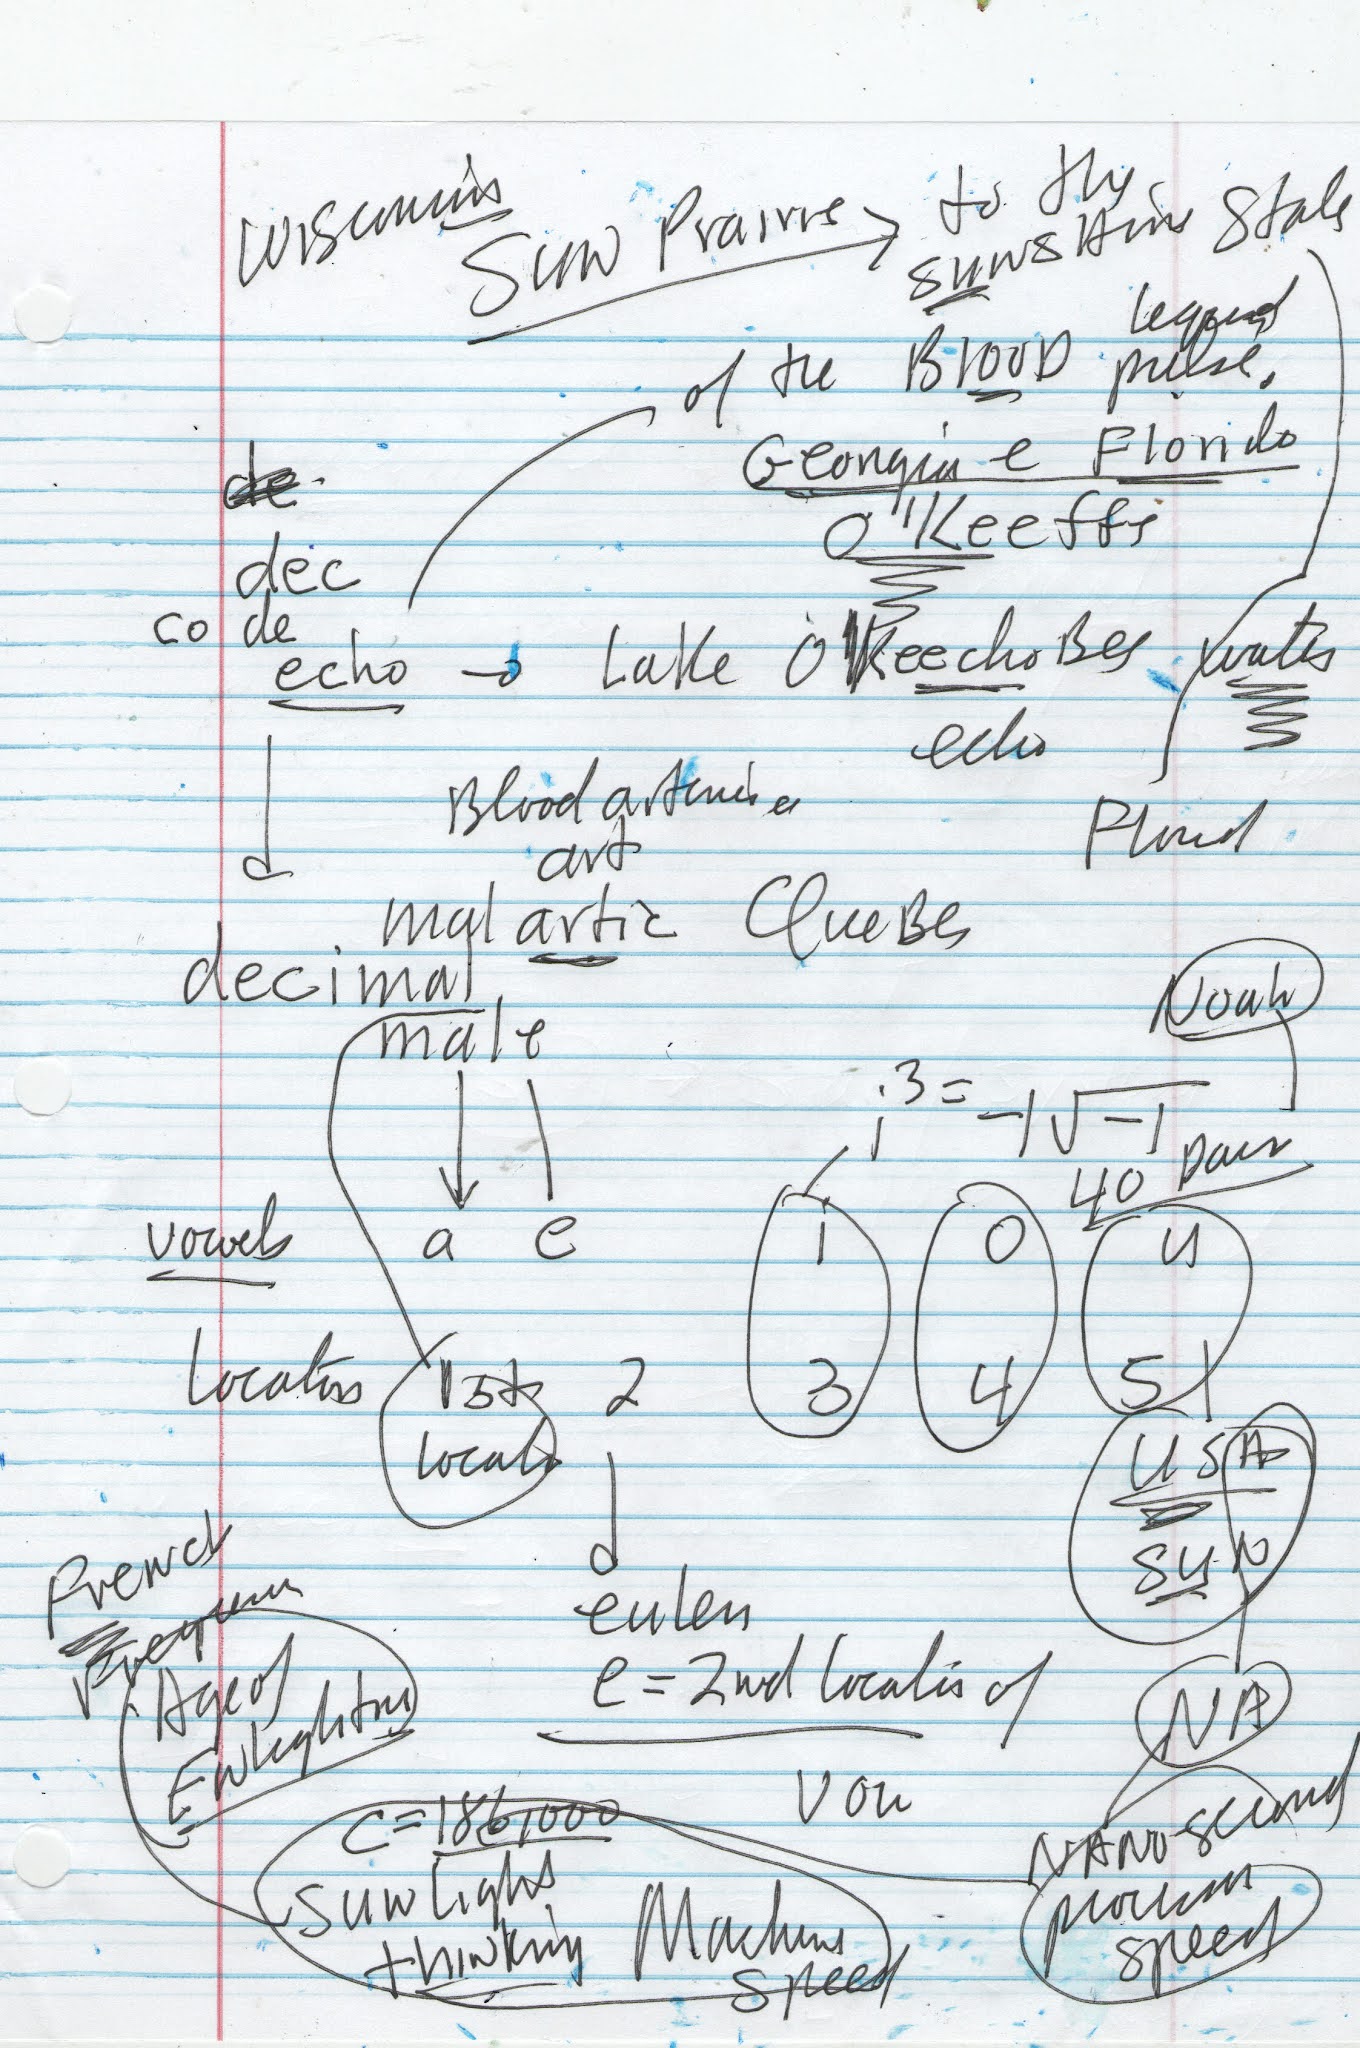 Wisconsin
Sun Prairie → to the
sunshine State
of the Blood legend
pulse.
Georgia e Florida
O'Keeffe
dec
co de
echo → Lake O'KeechoBee water
echo
Blood artemis
art
Flood
malartic QueBec
decimal
male
Noah
i³ = -1√-1
40 Days
vowels a e i o u
Location 1st 2 3 4 5
Location
USA
sun
French
euler
Age of
Enlighten
e = 2nd location of
NA
vow
c = 186,000
NANO second
sunlight
process
thinking Machine
speed
speed